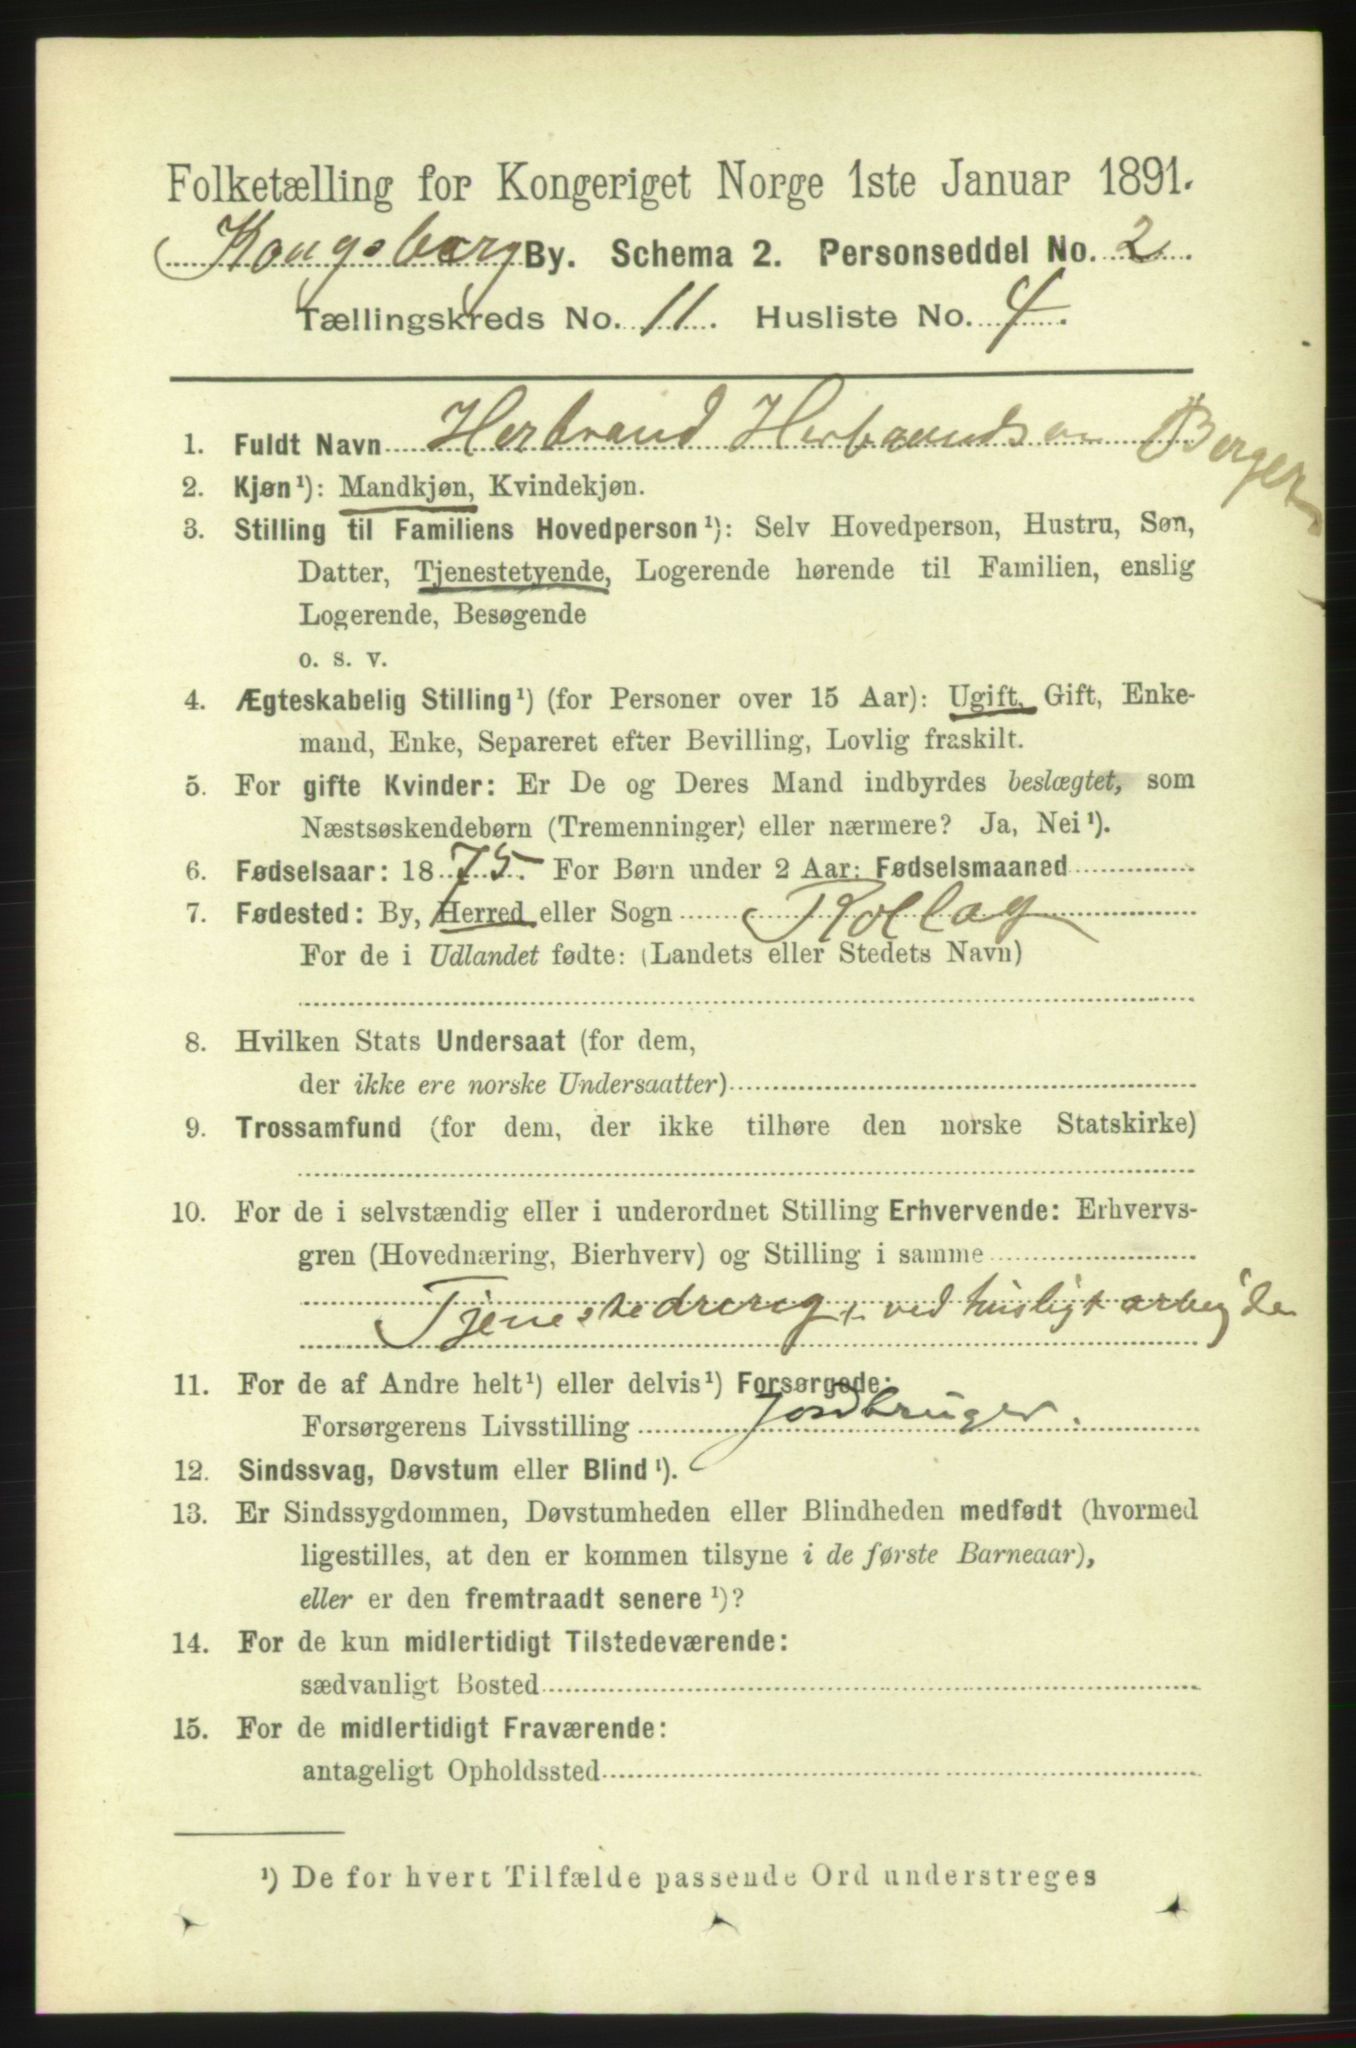 Folketælling for Kongeriget Norge 1ste Januar 1891.
Kongsberg By. Schema 2. Personseddel No. 2.
Tællingskreds No. 11. Husliste No. 4.
1. Fuldt Navn Herbrand Herbrandsen Bergen
2. Kjøn¹): Mandkjøn, Kvindekjøn.
3. Stilling til Familiens Hovedperson¹): Selv Hovedperson, Hustru, Søn,
Datter, Tjenestetyende, Logerende hørende til Familien, enslig
Logerende, Besøgende
o. s. v.
4. Ægteskabelig Stilling¹) (for Personer over 15 Aar): Ugift, Gift, Enke-
mand, Enke, Separeret efter Bevilling, Lovlig fraskilt.
5. For gifte Kvinder: Er De og Deres Mand indbyrdes beslægtet, som
Næstsøskendebørn (Tremenninger) eller nærmere? Ja, Nei¹).
6. Fødselsaar: 1875. For Børn under 2 Aar: Fødselsmaaned
7. Fødested: By, Herred eller Sogn Rollag
For de i Udlandet fødte: (Landets eller Stedets Navn)
8. Hvilken Stats Undersaat (for dem,
der ikke ere norske Undersaatter)
9. Trossamfund (for dem, der ikke tilhøre den norske Statskirke)
10. For de i selvstændig eller i underordnet Stilling Erhvervende: Erhvervs-
gren (Hovednæring, Bierhverv) og Stilling i samme
Tjenestedreng, ved husligt arbejde
11. For de af Andre helt¹) eller delvis¹) Forsørgede:
Forsørgerens Livsstilling Jordbruger.
12. Sindssvag, Døvstum eller Blind¹).
13. Er Sindssygdommen, Døvstumheden eller Blindheden medfødt (hvormed
ligestilles, at den er kommen tilsyne i de første Barneaar),
eller er den fremtraadt senere¹)?
14. For de kun midlertidigt Tilstedeværende:
sædvanligt Bosted
15. For de midlertidigt Fraværende:
antageligt Opholdssted
¹) De for hvert Tilfælde passende Ord understreges